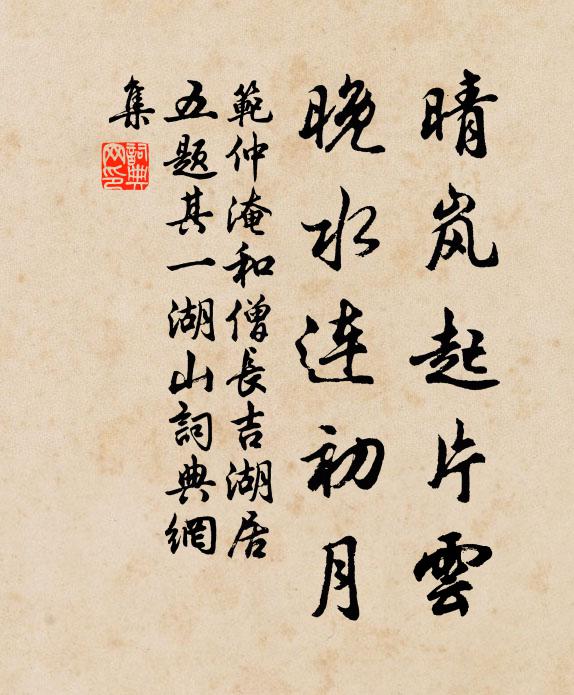 晴岚起片雲
晚水连初月
範仲淹和僧長吉湖居
五题其一湖山詞典網
集
詞典网印